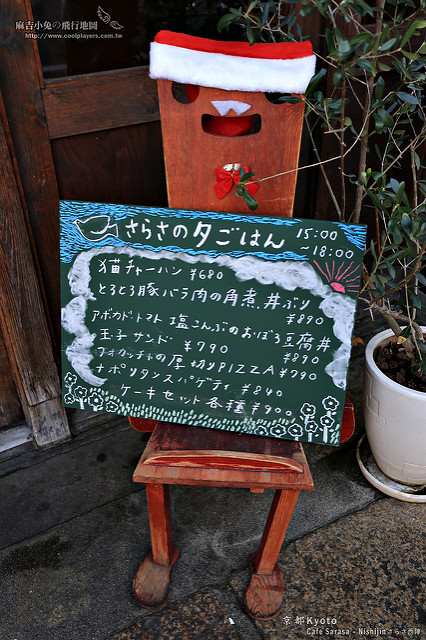 麻吉小兔の飛行地圖
http://www.coolplayers.com.tw
さらさの夕ごはん 15:00
~18:00
猫チャーハン ¥680
とろとろ豚バラ肉の角煮丼ぶり
¥890
アボカドトマト塩こんぶのおぼろ豆腐丼
¥890
玉子サンド ¥790
フォカッチャの厚切りPIZZA ¥990
ナポリタンスパゲティ ¥840
ケーキセット各種 ¥900
京都Kyoto
Cafe Sarasa - Nishijinさらさ西陣